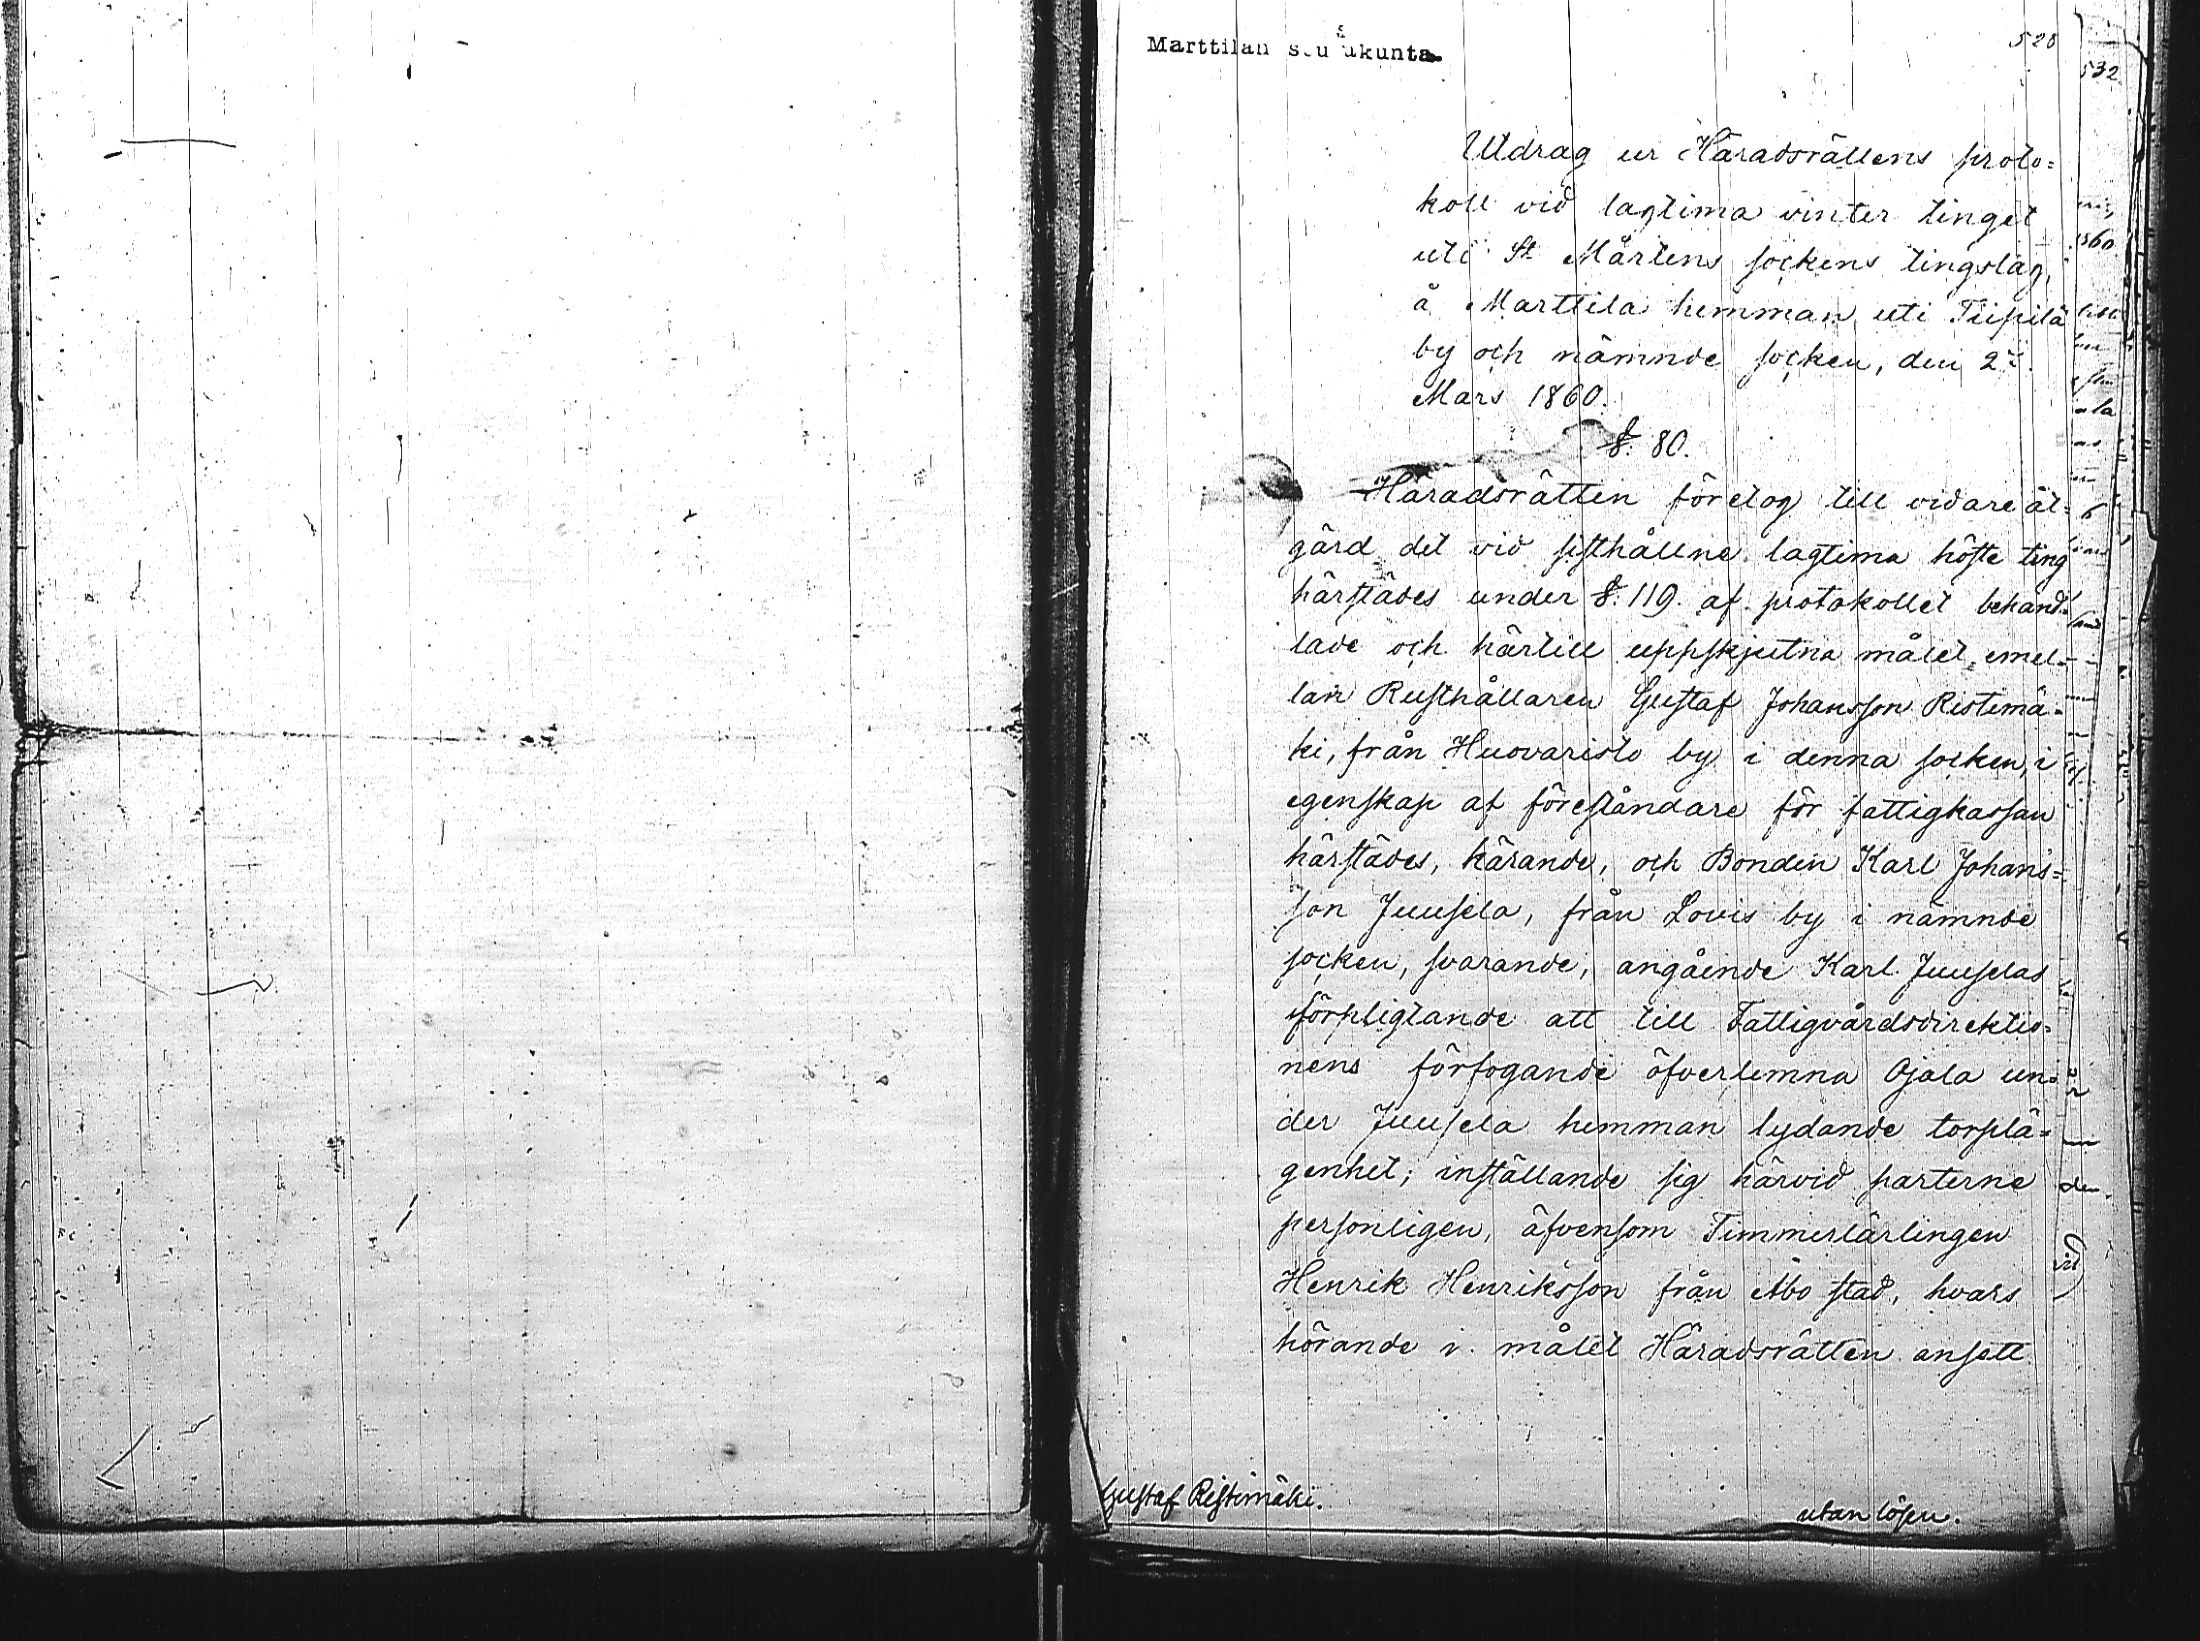 Marttilan seurakunta
528
532
Utdrag ur Häradsrättens proto=
koll vid lagtima vinter tinget
uti St Mårtens sockens tingslag,
å Marttila hemman uti Tiipilä
by och nämnde socken, den 2
Mars 1860.
§. 80.
Häradsrätten företog till vidare åt=
gärd det vid sisthållne lagtima höste ting
härstädes under §. 119. af protokollet behand=
lade och härtill uppskjutna målet emel=
lan Rusthållaren Gustaf Johansson Ristimä=
ki, från Huovaristo by i denna socken, i
egenskap af föreståndare för fattigkassan
härstädes, kärande, och Bonden Karl Johans=
son Juusela, från Lovis by i nämnde
socken, svarande, angående Karl Juuselas
förpligtande att till Fattigvårdsdirektio=
nens förfogande öfverlemna Ojala un=
der Juusela hemman lydande torplä=
genhet; inställande sig härvid parterne
personligen, äfvensom Timmerlärlingen
Henrik Henriksson från Åbo stad, hvars
hörande i målet Häradsrätten ansett
Gustaf Ristimäki.
utan lösen.
1860